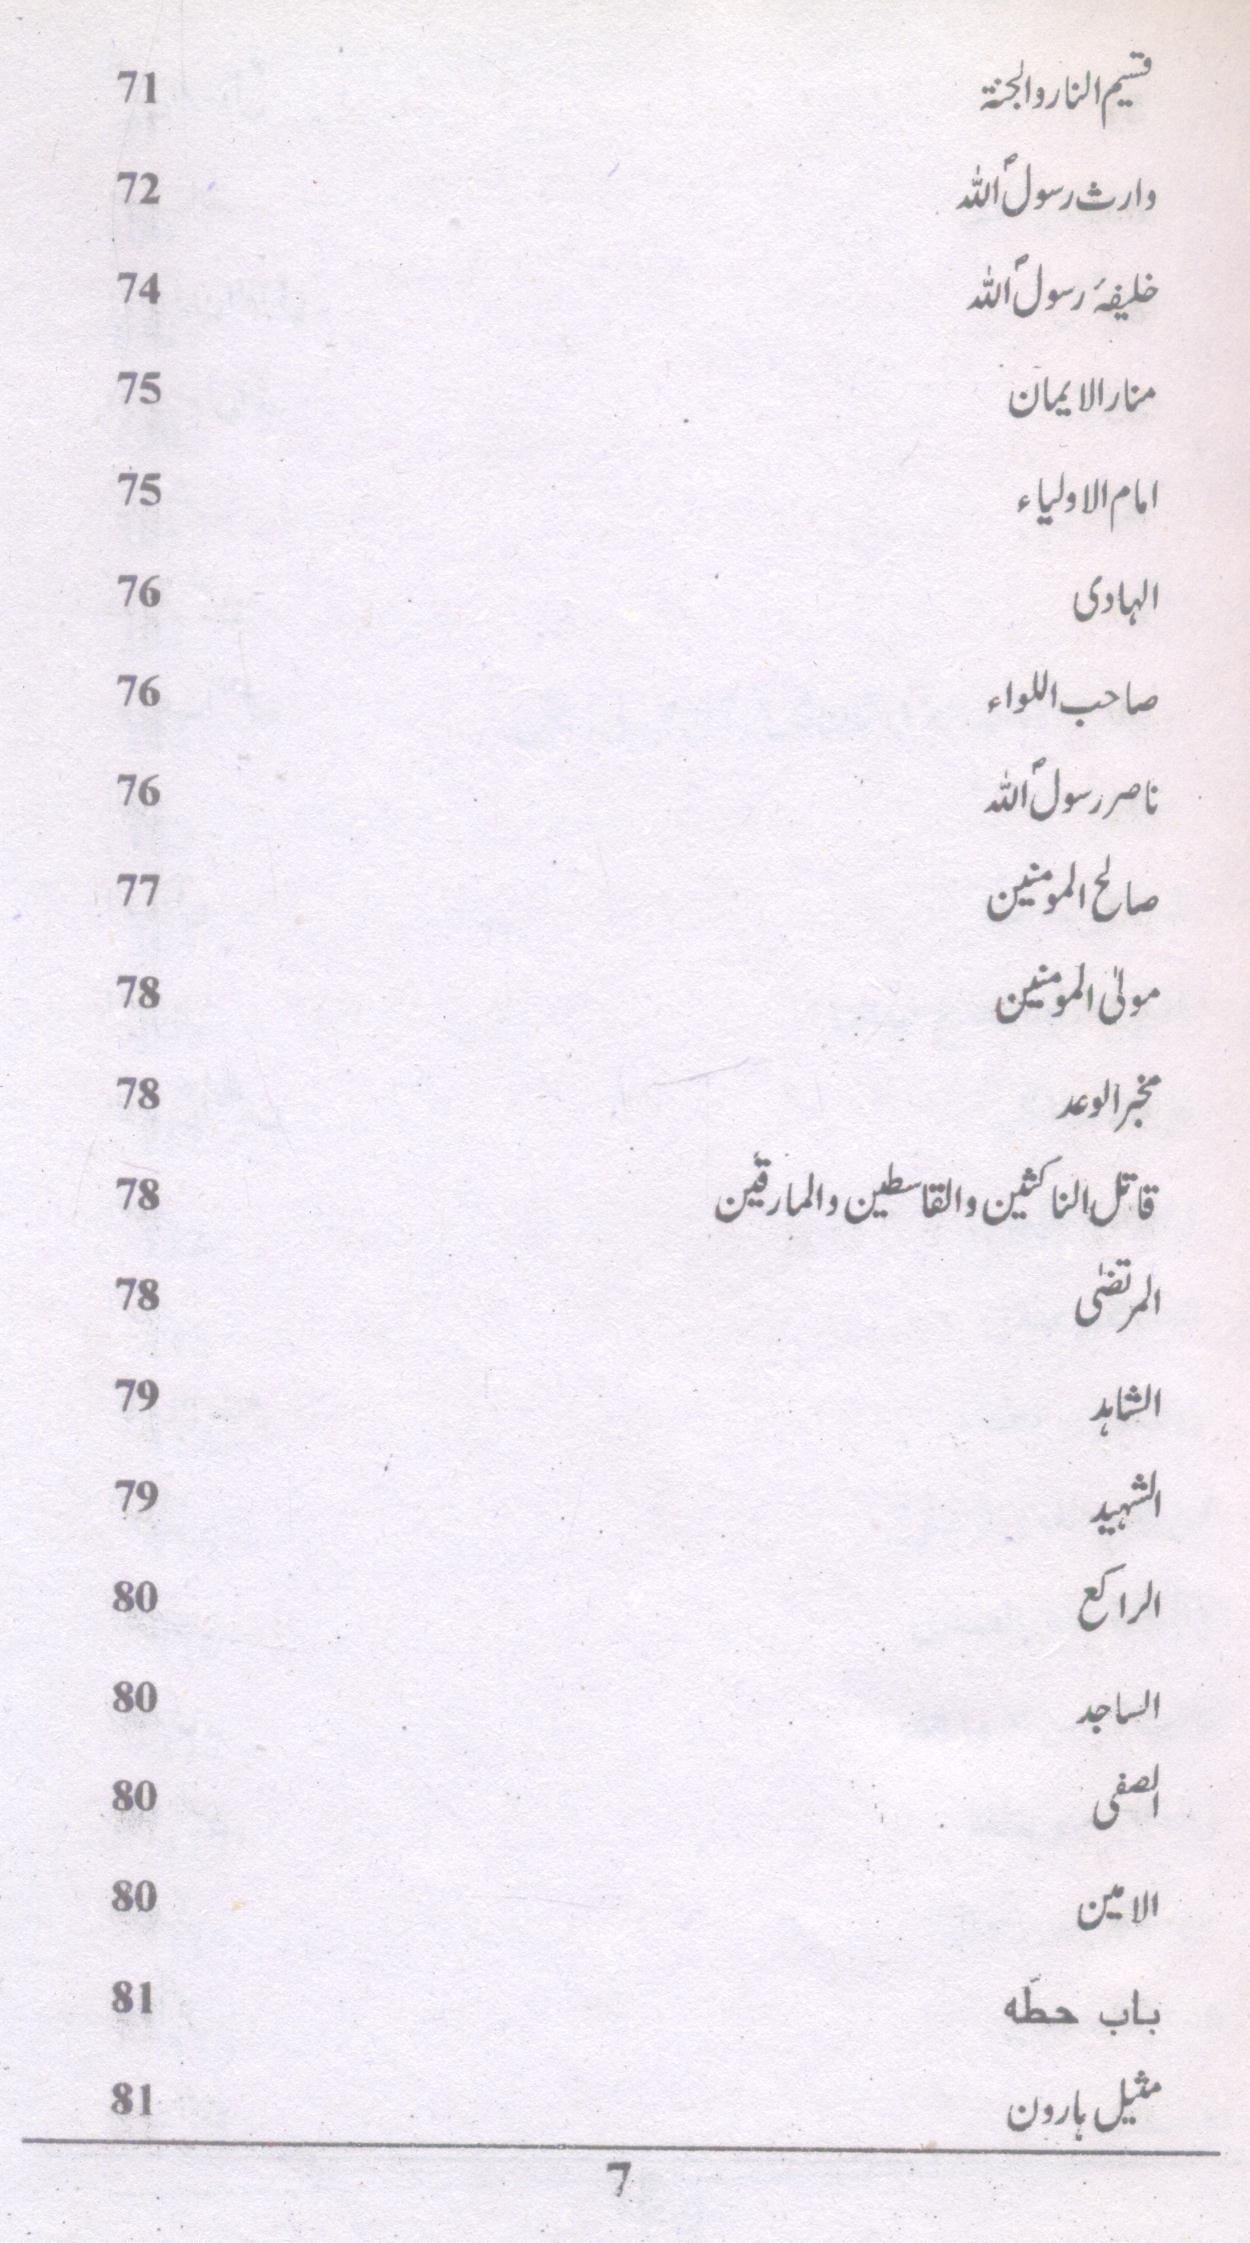 قسیم النار والجنۃ 71
وارث رسولؐ اللہ 72
خلیفۂ رسولؐ اللہ 74
منار الایمان 75
امام الاولیاء 75
الہادی 76
صاحب اللواء 76
ناصر رسولؐ اللہ 76
صالح المومنین 77
مولیٰ المومنین 78
مخبر الوعد 78
قاتل الناکثین والقاسطین والمارقین 78
المرتضیٰ 78
الشاہد 79
الشہید 79
الراکع 80
الساجد 80
الصفی 80
الامین 80
باب حطّہ 81
مثیل ہارون 81
7